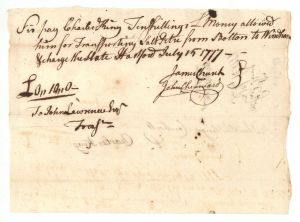 Sir pay Charles King Ten Shillings L Money allowd
him for Transporting Salt Petre from Bolton to Windham
& charge the State Hartford July 15 1777
James Church
John Chenward
£0,, 10,, 0
To John Lawrence Esqr
Treasr